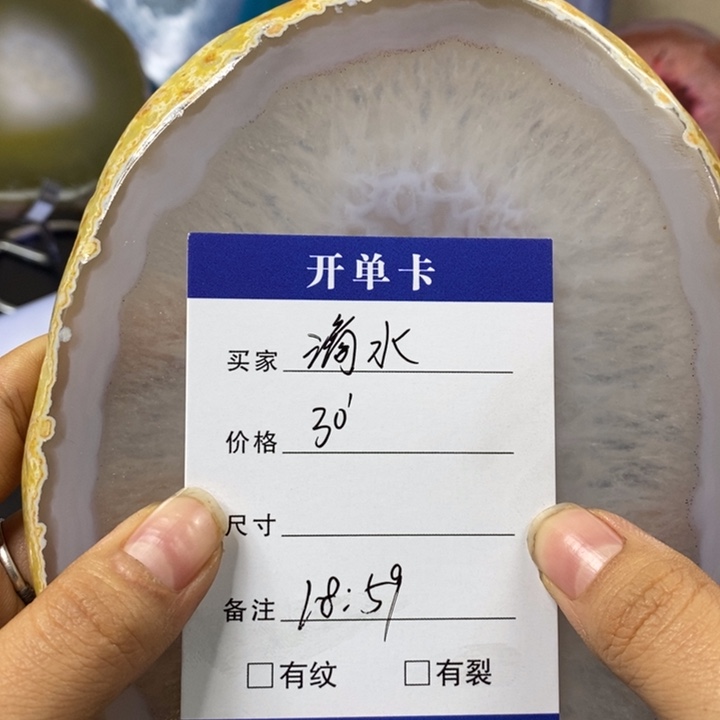 开单卡
买家 滴水
价格 30'
尺寸
备注 18:59
□有纹 □有裂